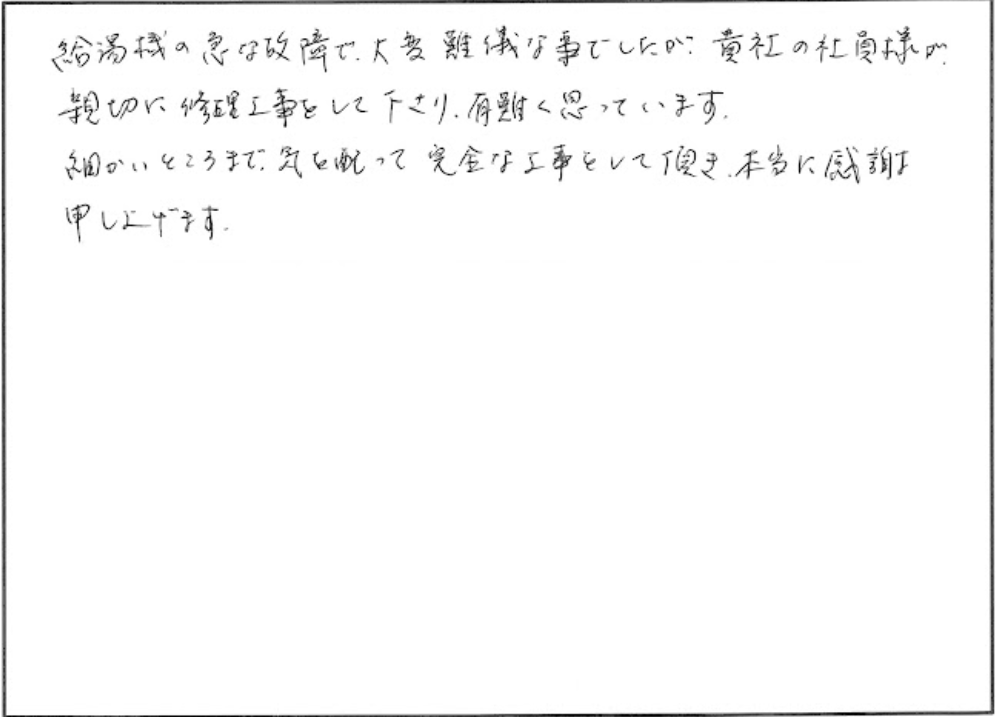 給湯機の急な故障で、大変難儀な事でしたが、貴社の社員様が、
親切に修理工事をして下さり、有難く思っています。
細かいところまで、気を配って完全な工事をして頂き、本当に感謝
申し上げます。